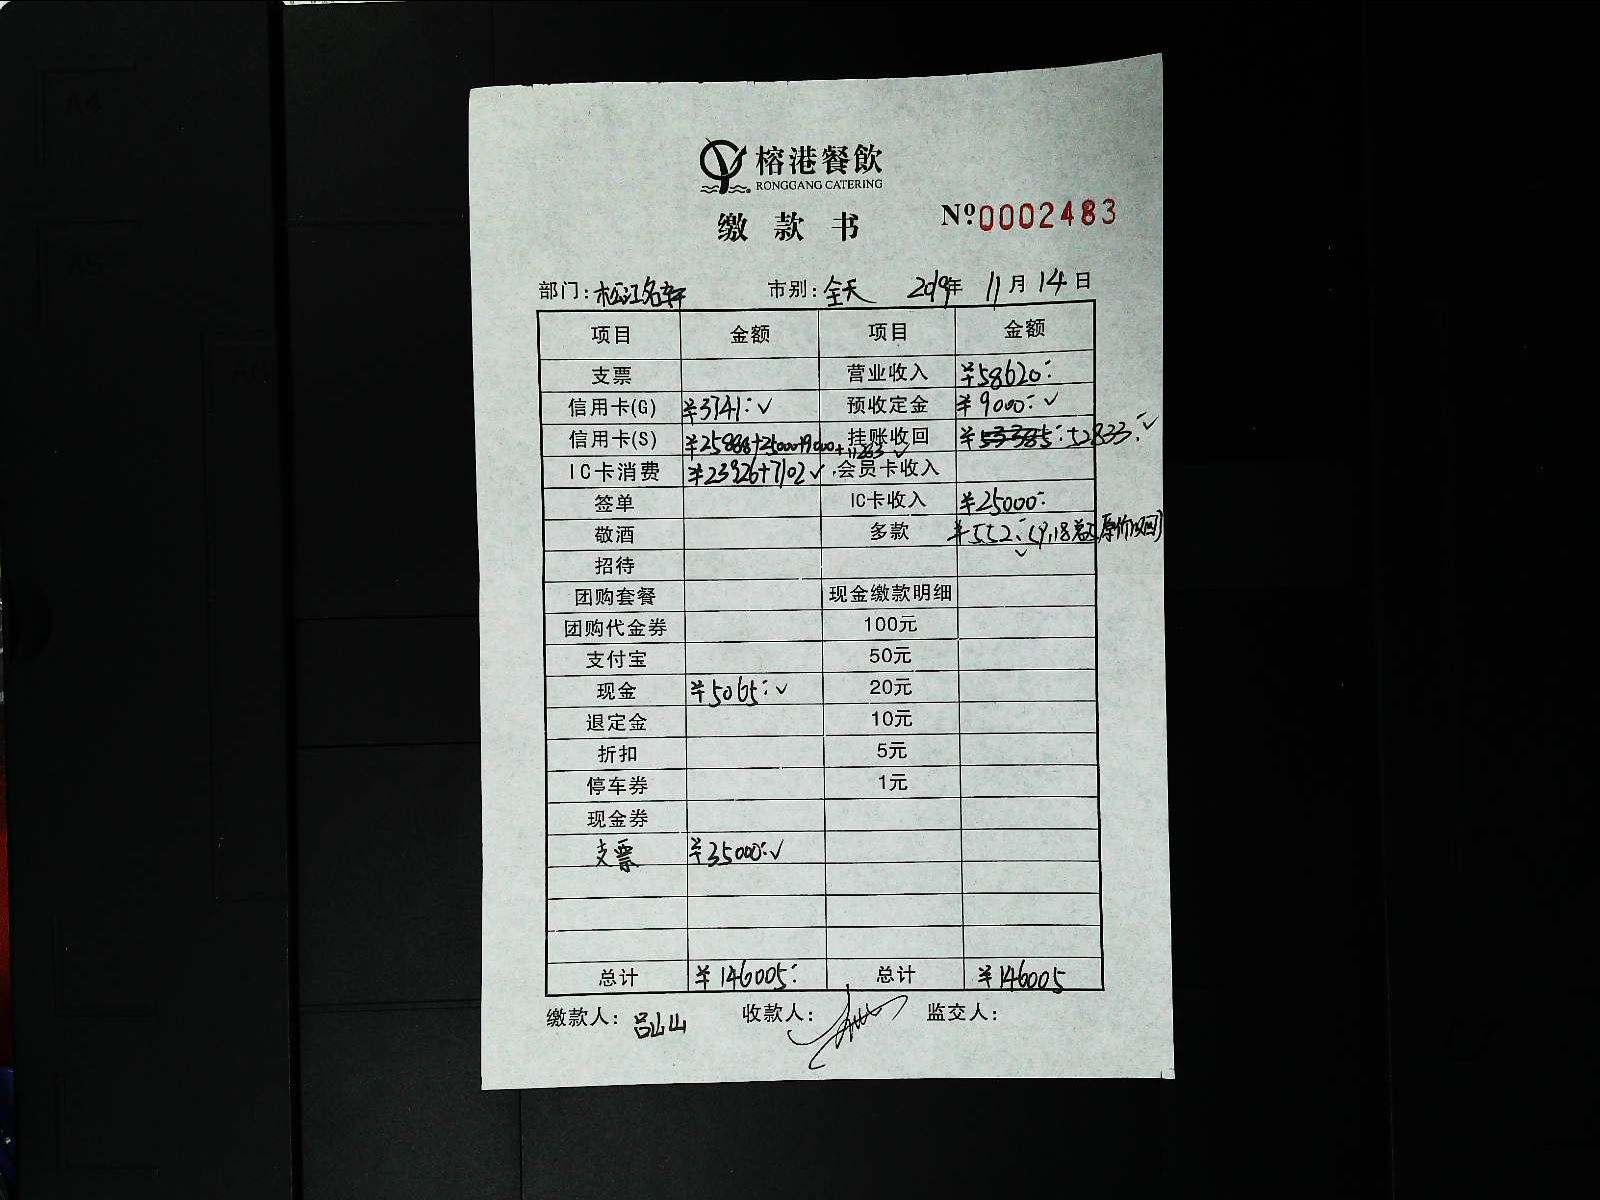 榕港餐飲
RONGGANG CATERING
缴款书
Nº:0002483
部门:松江名轩 市别:全天 2019年 11月14日
项目 金额 项目 金额
支票 营业收入 ¥58620:
信用卡(G) ¥3741:✓ 预收定金 ¥9000:✓
信用卡(S) ¥25888+25000+9000+11263✓ 挂账收回 ¥53385: 52833:✓
IC卡消费 ¥23926+7102✓ 会员卡收入
签单 IC卡收入 ¥25000:
敬酒 多款 ¥552:
招待
团购套餐 现金缴款明细
团购代金券 100元
支付宝 50元
现金 ¥5065:✓ 20元
退定金 10元
折扣 5元
停车券 1元
现金券
支票 ¥35000:✓
总计 ¥146005: 总计 ¥146005
缴款人:吕山山 收款人: 监交人: